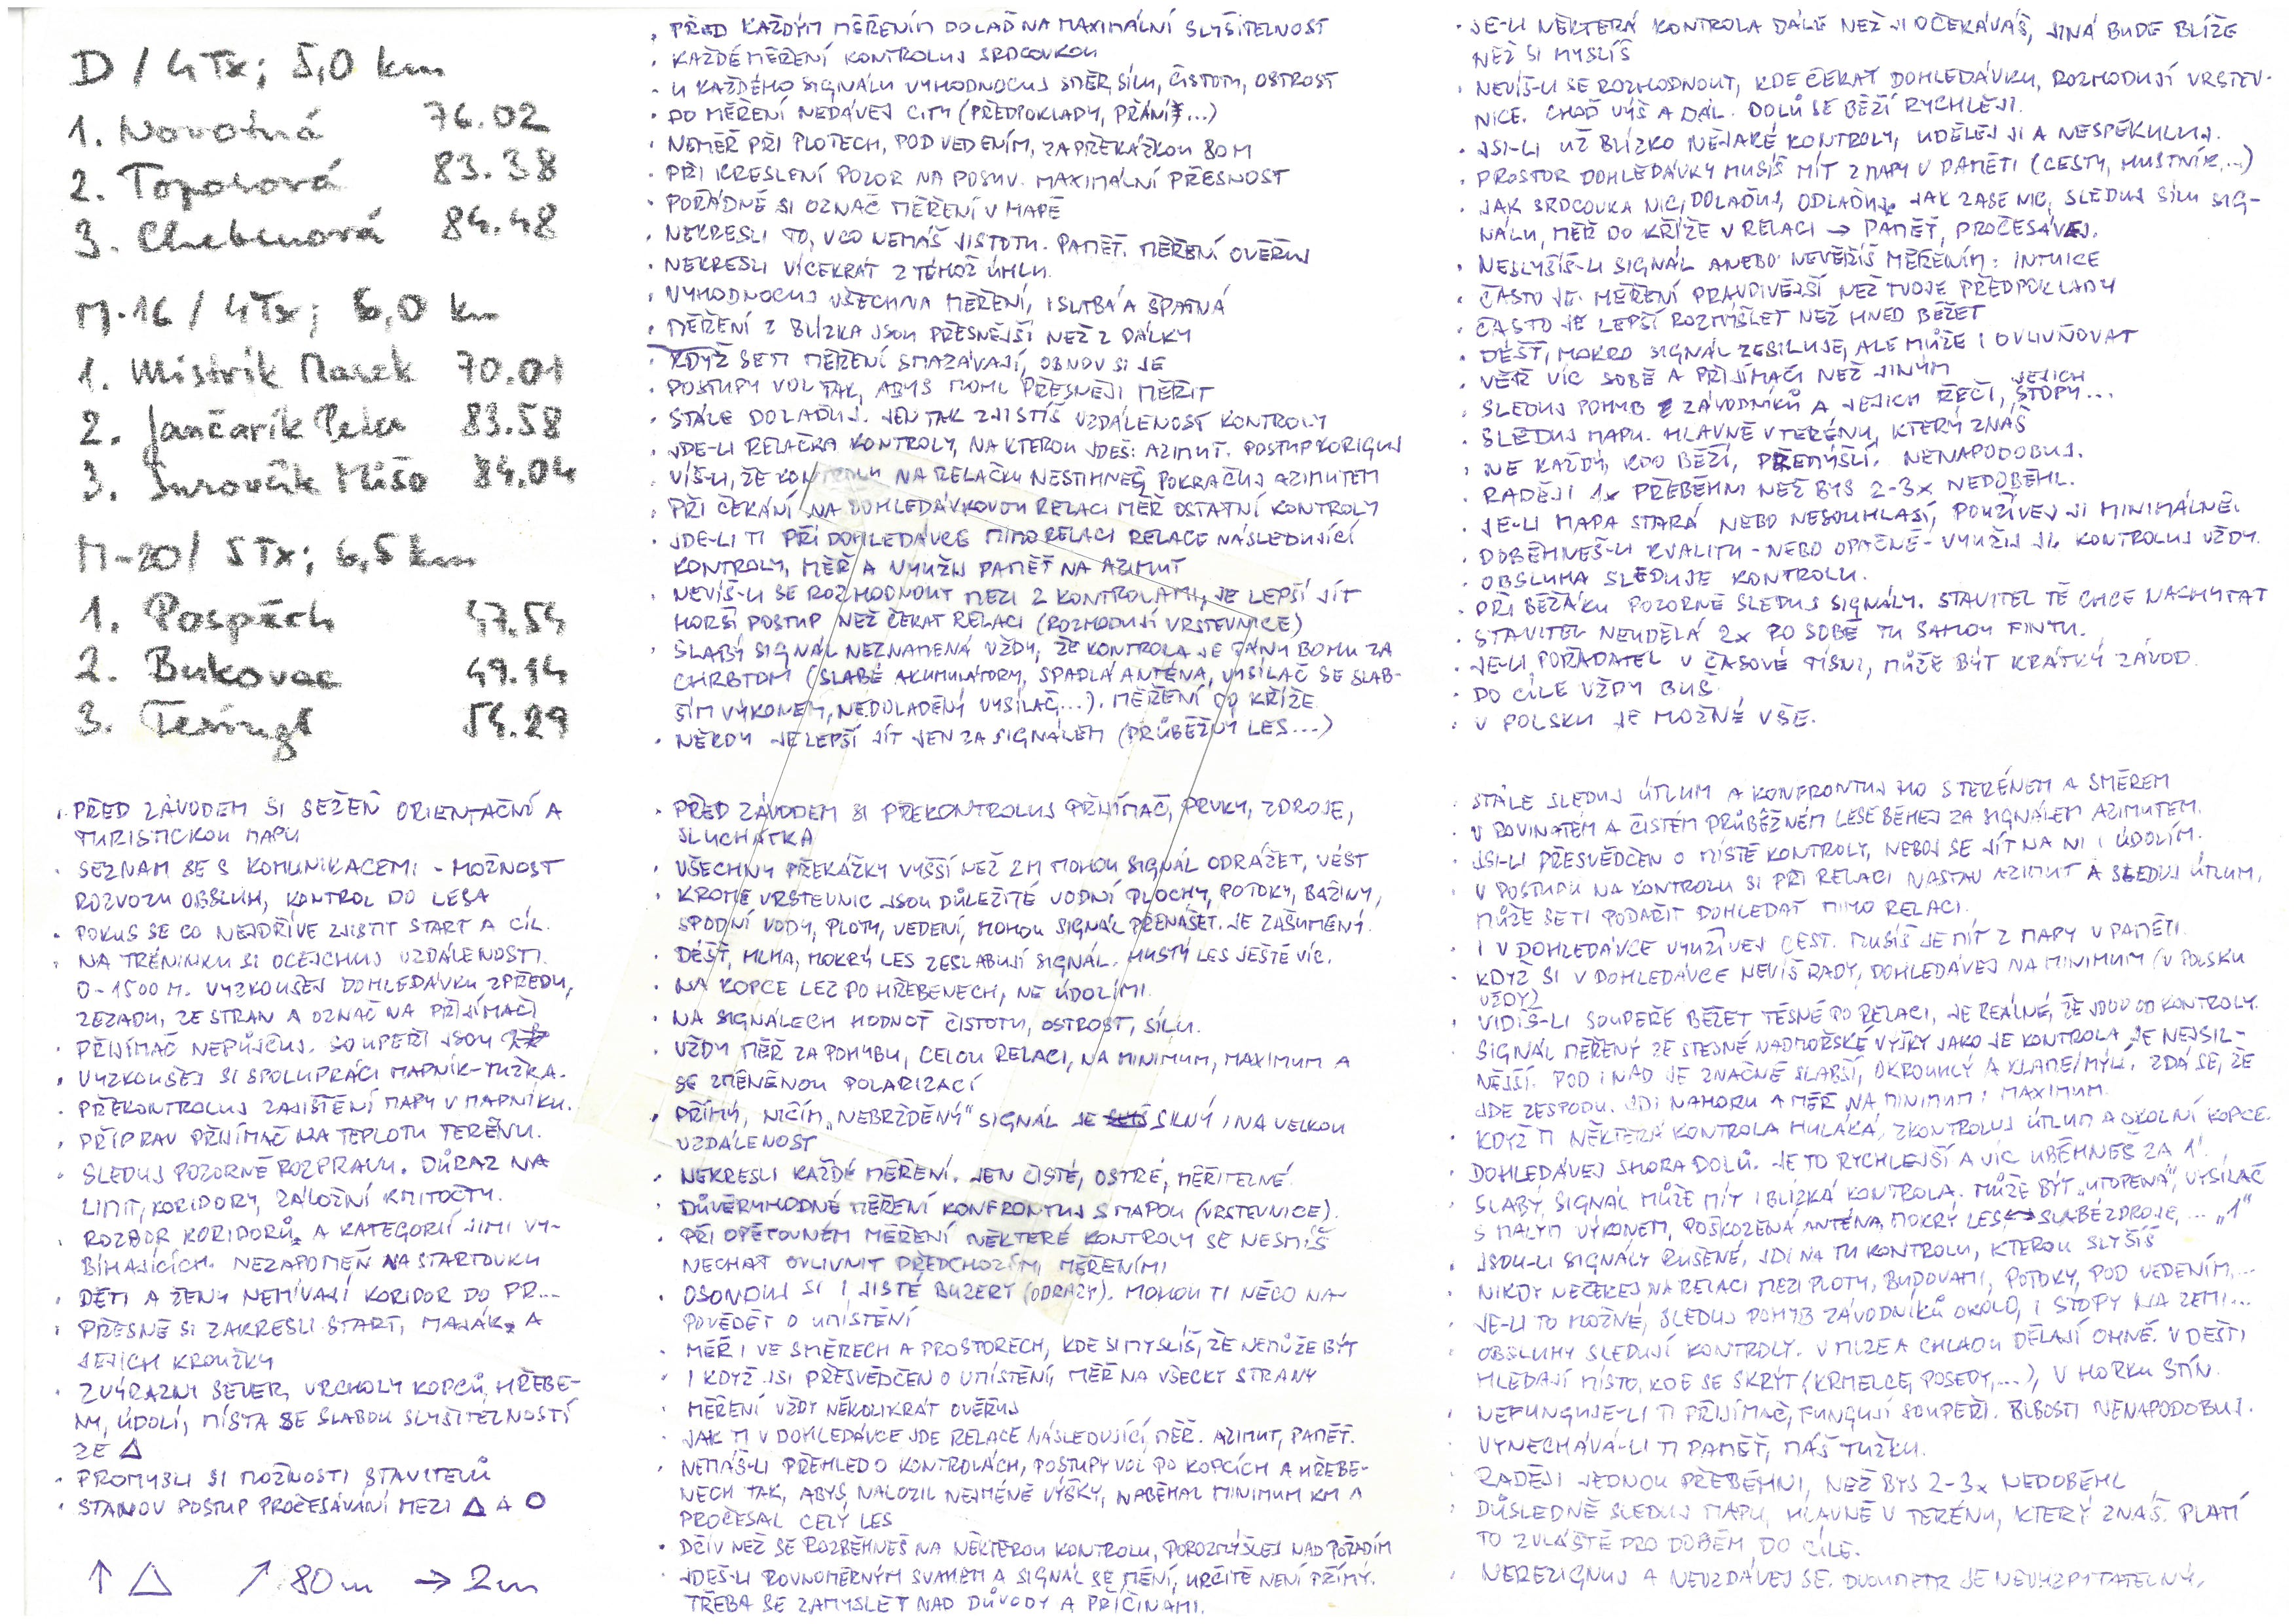 D / 4Tx; 5,0 km
1. Novotná 76.02
2. Topolová 83.38
3. Chebenová 84.48
M-16 / 4Tx; 5,0 km
1. Mistrík Marek 70.01
2. Jančařík Peter 83.58
3. Surovčík Mišo 84.04
M-20 / 5Tx; 6,5 km
1. Pospěch 47.54
2. Bukovac 49.14
3. Tesingl 54.29
• PŘED ZÁVODEM SI SEŽEŇ ORIENTAČNÍ A
TURISTICKOU MAPU
• SEZNAM SE S KOMUNIKACEMI - MOŽNOST
ROZVOZU OBSLUH, KONTROL DO LESA
• POKUS SE CO NEJDŘÍVE ZJISTIT START A CÍL.
• NA TRÉNINKU SI OCEJCHUJ VZDÁLENOSTI
0-1500 M. VYZKOUŠEJ DOHLEDÁVKU ZPŘEDU,
ZEZADU, ZE STRAN A OZNAČ NA PŘIJÍMAČI
• PŘIJÍMAČ NEPŮJČUJ. SOUPEŘI JSOU
• VYZKOUŠEJ SI SPOLUPRÁCI MAPNÍK-TUŽKA.
• PŘEKONTROLUJ ZAJIŠTĚNÍ MAPY V MAPNÍKU.
• PŘIPRAV PŘIJÍMAČ NA TEPLOTU TERÉNU.
• SLEDUJ POZORNĚ ROZPRAVU. DŮRAZ NA
LIMIT, KORIDORY, ZÁLOŽNÍ KMITOČTY.
• ROZBOR KORIDORŮ A KATEGORIÍ JIMI VY-
BÍHAJÍCÍCH. NEZAPOMEŇ NA STARTOVKU
• DĚTI A ŽENY NEMÍVAJÍ KORIDOR DO PR...
• PŘESNĚ SI ZAKRESLI START, MAJÁK, A
JEJICH KROUŽKY
• ZVÝRAZNI SEVER, VRCHOLY KOPCŮ, HŘEBE-
NY, ÚDOLÍ, MÍSTA SE SLABOU SLYŠITELNOSTÍ
ZE △
• PROMYSLI SI MOŽNOSTI STAVITELŮ
• STANOV POSTUP PROČESÁVÁNÍ MEZI △ A O
↑ △ ↗ 80m → 2m
• PŘED KAŽDÝM MĚŘENÍM DOLAĎ NA MAXIMÁLNÍ SLYŠITELNOST
• KAŽDÉ MĚŘENÍ KONTROLUJ SRDCOVKOU
• U KAŽDÉHO SIGNÁLU VYHODNOCUJ SMĚR, SÍLU, ČISTOTU, OSTROST
• DO MĚŘENÍ NEDÁVEJ CITY (PŘEDPOKLADY, PŘÁNÍ...)
• NEMĚŘ PŘI PLOTECH, POD VEDENÍM, ZA PŘEKÁŽKOU 80M
• PŘI KRESLENÍ POZOR NA POSUV. MAXIMÁLNÍ PŘESNOST
• POŘÁDNĚ SI OZNAČ MĚŘENÍ V MAPĚ
• NEKRESLI TO, V CO NEMÁŠ JISTOTU. PAMĚŤ. MĚŘENÍ OVĚŘUJ
• NEKRESLI VÍCEKRÁT Z TÉHOŽ ÚHLU.
• VYHODNOCUJ VŠECHNA MĚŘENÍ, I SLABÁ A ŠPATNÁ
• MĚŘENÍ Z BLÍZKA JSOU PŘESNĚJŠÍ NEŽ Z DÁLKY
• KDYŽ SE TI MĚŘENÍ SMAZÁVAJÍ, OBNOV SI JE
• POSTUPY VOL TAK, ABYS MOHL PŘESNĚJI MĚŘIT
• STÁLE DOLAĎUJ. JEN TAK ZJISTÍŠ VZDÁLENOST KONTROLY
• JDE-LI RELAČKA KONTROLY, NA KTEROU JDEŠ: AZIMUT. POSTUP KORIGUJ
• VÍŠ-LI, ŽE KONTROLU NA RELAČKU NESTIHNEŠ, POKRAČUJ AZIMUTEM
• PŘI ČEKÁNÍ NA DOHLEDÁVKOVOU RELACI MĚŘ OSTATNÍ KONTROLY
• JDE-LI TI PŘI DOHLEDÁVCE MIMO RELACI RELACE NÁSLEDUJÍCÍ
KONTROLY, MĚŘ A VYUŽIJ PAMĚŤ NA AZIMUT
• NEVÍŠ-LI SE ROZHODNOUT MEZI 2 KONTROLAMI, JE LEPŠÍ JÍT
HORŠÍ POSTUP NEŽ ČEKAT RELACI (ROZHODUJÍ VRSTEVNICE)
• SLABÝ SIGNÁL NEZNAMENÁ VŽDY, ŽE KONTROLA JE PÁNU BOHU ZA
CHRBTOM (SLABÉ AKUMULÁTORY, SPADLÁ ANTÉNA, VYSÍLAČ SE SLAB-
ŠÍM VÝKONEM, NEDOLADĚNÝ VYSÍLAČ...). MĚŘENÍ DO KŘÍŽE
• NĚKDY JE LEPŠÍ JÍT JEN ZA SIGNÁLEM (PRŮBĚŽNÝ LES...)
• PŘED ZÁVODEM SI PŘEKONTROLUJ PŘIJÍMAČ, PRVKY, ZDROJE,
SLUCHÁTKA
• VŠECHNY PŘEKÁŽKY VYŠŠÍ NEŽ 2M MOHOU SIGNÁL ODRÁŽET, VÉST
• KROMĚ VRSTEVNIC JSOU DŮLEŽITÉ VODNÍ PLOCHY, POTOKY, BAŽINY,
SPODNÍ VODY, PLOTY, VEDENÍ, MOHOU SIGNÁL PŘENÁŠET. JE ZAŠUMĚNÝ.
• DÉŠŤ, MLHA, MOKRÝ LES ZESLABUJÍ SIGNÁL. HUSTÝ LES JEŠTĚ VÍC.
• NA KOPCE LEZ PO HŘEBENECH, NE ÚDOLÍMI.
• NA SIGNÁLECH HODNOŤ ČISTOTU, OSTROST, SÍLU.
• VŽDY MĚŘ ZA POHYBU, CELOU RELACI, NA MINIMUM, MAXIMUM A
SE ZMĚNĚNOU POLARIZACÍ
• PŘÍMÝ, NIČÍM „NEBRŽDĚNÝ" SIGNÁL JE SILNÝ I NA VELKOU
VZDÁLENOST
• NEKRESLI KAŽDÉ MĚŘENÍ. JEN ČISTÉ, OSTRÉ, MĚŘITELNÉ.
• DŮVĚRYHODNÉ MĚŘENÍ KONFRONTUJ S MAPOU (VRSTEVNICE).
• PŘI OPĚTOVNÉM MĚŘENÍ NĚKTERÉ KONTROLY SE NESMÍŠ
NECHAT OVLIVNIT PŘEDCHOZÍMI MĚŘENÍMI
• OSONDUJ SI I JISTÉ BUZERY (ODRAZY). MOHOU TI NĚCO NA-
POVĚDĚT O UMÍSTĚNÍ
• MĚŘ I VE SMĚRECH A PROSTORECH, KDE SI MYSLÍŠ, ŽE NEMŮŽE BÝT
• I KDYŽ JSI PŘESVĚDČEN O UMÍSTĚNÍ, MĚŘ NA VŠECKY STRANY
• MĚŘENÍ VŽDY NĚKOLIKRÁT OVĚŘUJ
• JAK TI V DOHLEDÁVCE JDE RELACE NÁSLEDUJÍCÍ, MĚŘ. AZIMUT, PAMĚŤ.
• NEMÁŠ-LI PŘEHLED O KONTROLÁCH, POSTUPY VOL PO KOPCÍCH A HŘEBE-
NECH TAK, ABYS NALOZIL NEJMÉNĚ VÝŠKY, NABĚHAL MINIMUM KM A
PROČESAL CELÝ LES
• DŘÍV NEŽ SE ROZBĚHNEŠ NA NĚKTEROU KONTROLU, POROZMÝŠLEJ NAD POŘADÍM
• JDEŠ-LI ROVNOMĚRNÝM SVAHEM A SIGNÁL SE MĚNÍ, URČITĚ NENÍ PŘÍMÝ.
TŘEBA SE ZAMYSLET NAD DŮVODY A PŘÍČINAMI.
• JE-LI NĚKTERÁ KONTROLA DÁLE NEŽ JI OČEKÁVÁŠ, JINÁ BUDE BLÍŽE
NEŽ SI MYSLÍŠ
• NEVÍŠ-LI SE ROZHODNOUT, KDE ČEKAT DOHLEDÁVKU, ROZHODUJÍ VRSTEV-
NICE. CHOĎ VÝŠ A DÁL. DOLŮ SE BĚŽÍ RYCHLEJI.
• JSI-LI UŽ BLÍZKO NĚJAKÉ KONTROLY, UDĚLEJ JI A NESPEKULUJ.
• PROSTOR DOHLEDÁVKY MUSÍŠ MÍT Z MAPY V PAMĚTI (CESTY, HUSTNÍK,...)
• JAK SRDCOVKA NIC, DOLAĎUJ, ODLAĎUJ. JAK ZASE NIC, SLEDUJ SÍLU SIG-
NÁLU, MĚŘ DO KŘÍŽE V RELACI → PAMĚŤ, PROČESÁVEJ.
• NESLYŠÍŠ-LI SIGNÁL ANEBO NEVĚŘÍŠ MĚŘENÍM: INTUICE
• ČASTO JE MĚŘENÍ PRAVDIVĚJŠÍ NEŽ TVOJE PŘEDPOKLADY
• ČASTO JE LEPŠÍ ROZMÝŠLET NEŽ HNED BĚŽET
• DÉŠŤ, MOKRO SIGNÁL ZESILUJE, ALE MŮŽE I OVLIVŇOVAT
• VĚŘ VÍC SOBĚ A PŘIJÍMAČI NEŽ JINÝM
• SLEDUJ POHYB ZÁVODNÍKŮ A JEJICH ŘEČI, JEJICH STOPY...
• SLEDUJ MAPU. HLAVNĚ V TERÉNU, KTERÝ ZNÁŠ
• NE KAŽDÝ, KDO BĚŽÍ, PŘEMÝŠLÍ. NENAPODOBUJ.
• RADĚJI 1x PŘEBĚHNI NEŽ BYS 2-3x NEDOBĚHL.
• JE-LI MAPA STARÁ NEBO NESOUHLASÍ, POUŽÍVEJ JI MINIMÁLNĚ.
• DOBĚHNEŠ-LI KVALITU - NEBO OPAČNĚ - VYUŽIJ JI. KONTROLUJ VŽDY.
• OBSLUHA SLEDUJE KONTROLU.
• PŘI BĚŽÁKU POZORNĚ SLEDUJ SIGNÁLY. STAVITEL TĚ CHCE NACHYTAT
• STAVITEL NEUDĚLÁ 2x PO SOBĚ TU SAMOU FINTU.
• JE-LI POŘADATEL V ČASOVÉ TÍSNI, MŮŽE BÝT KRÁTKÝ ZÁVOD.
• DO CÍLE VŽDY BUŠ.
• V POLSKU JE MOŽNÉ VŠE.
• STÁLE SLEDUJ ÚTLUM A KONFRONTUJ HO S TERÉNEM A SMĚREM
• V ROVINATÉM A ČISTÉM PRŮBĚŽNÉM LESE BĚHEJ ZA SIGNÁLEM AZIMUTEM.
• JSI-LI PŘESVĚDČEN O MÍSTĚ KONTROLY, NEBOJ SE JÍT NA NI I ÚDOLÍM.
• V POSTUPU NA KONTROLU SI PŘI RELACI NASTAV AZIMUT A SLEDUJ ÚTLUM,
MŮŽE SE TI PODAŘIT DOHLEDAT MIMO RELACI.
• I V DOHLEDÁVCE VYUŽÍVEJ CEST. MUSÍŠ JE MÍT Z MAPY V PAMĚTI.
• KDYŽ SI V DOHLEDÁVCE NEVÍŠ RADY, DOHLEDÁVEJ NA MINIMUM (V POLSKU
VŽDY)
• VIDÍŠ-LI SOUPEŘE BĚŽET TĚSNĚ PO RELACI, JE REÁLNÉ, ŽE JDOU OD KONTROLY.
• SIGNÁL MĚŘENÝ ZE STEJNÉ NADMOŘSKÉ VÝŠKY JAKO JE KONTROLA JE NEJSIL-
NĚJŠÍ. POD I NAD JE ZNAČNĚ SLABŠÍ, OKROUHLÝ A KLAME/MÝLÍ. ZDÁ SE, ŽE
JDE ZESPODU. JDI NAHORU A MĚŘ NA MINIMUM I MAXIMUM.
• KDYŽ TI NĚKTERÁ KONTROLA HULÁKÁ, ZKONTROLUJ ÚTLUM A OKOLNÍ KOPCE.
• DOHLEDÁVEJ SHORA DOLŮ. JE TO RYCHLEJŠÍ A VÍC UBĚHNEŠ ZA 1'.
• SLABÝ SIGNÁL MŮŽE MÍT I BLÍZKÁ KONTROLA. MŮŽE BÝT „UTOPENÁ", VYSÍLAČ
S MALÝM VÝKONEM, POŠKOZENÁ ANTÉNA, MOKRÝ LES, SLABÉ ZDROJE, ... „1"
• JSOU-LI SIGNÁLY RUŠENÉ, JDI NA TU KONTROLU, KTEROU SLYŠÍŠ
• NIKDY NEČEKEJ NA RELACI MEZI PLOTY, BUDOVAMI, POTOKY, POD VEDENÍM,...
• JE-LI TO MOŽNÉ, SLEDUJ POHYB ZÁVODNÍKŮ OKOLO, I STOPY NA ZEMI...
• OBSLUHY SLEDUJÍ KONTROLY. V MLZE A CHLADU DĚLAJÍ OHNĚ. V DEŠTI
HLEDAJÍ MÍSTO, KDE SE SKRÝT (KRMELCE, POSEDY,...), V HORKU STÍN.
• NEFUNGUJE-LI TI PŘIJÍMAČ, FUNGUJÍ SOUPEŘI. BLBOSTI NENAPODOBUJ.
• VYNECHÁVÁ-LI TI PAMĚŤ, MÁŠ TUŽKU.
• RADĚJI JEDNOU PŘEBĚHNI, NEŽ BYS 2-3x NEDOBĚHL
• DŮSLEDNĚ SLEDUJ MAPU, HLAVNĚ V TERÉNU, KTERÝ ZNÁŠ. PLATÍ
TO ZVLÁŠTĚ PRO DOBĚH DO CÍLE.
• NEREZIGNUJ A NEVZDÁVEJ SE. DVOUMETR JE NEVYZPYTATELNÝ.